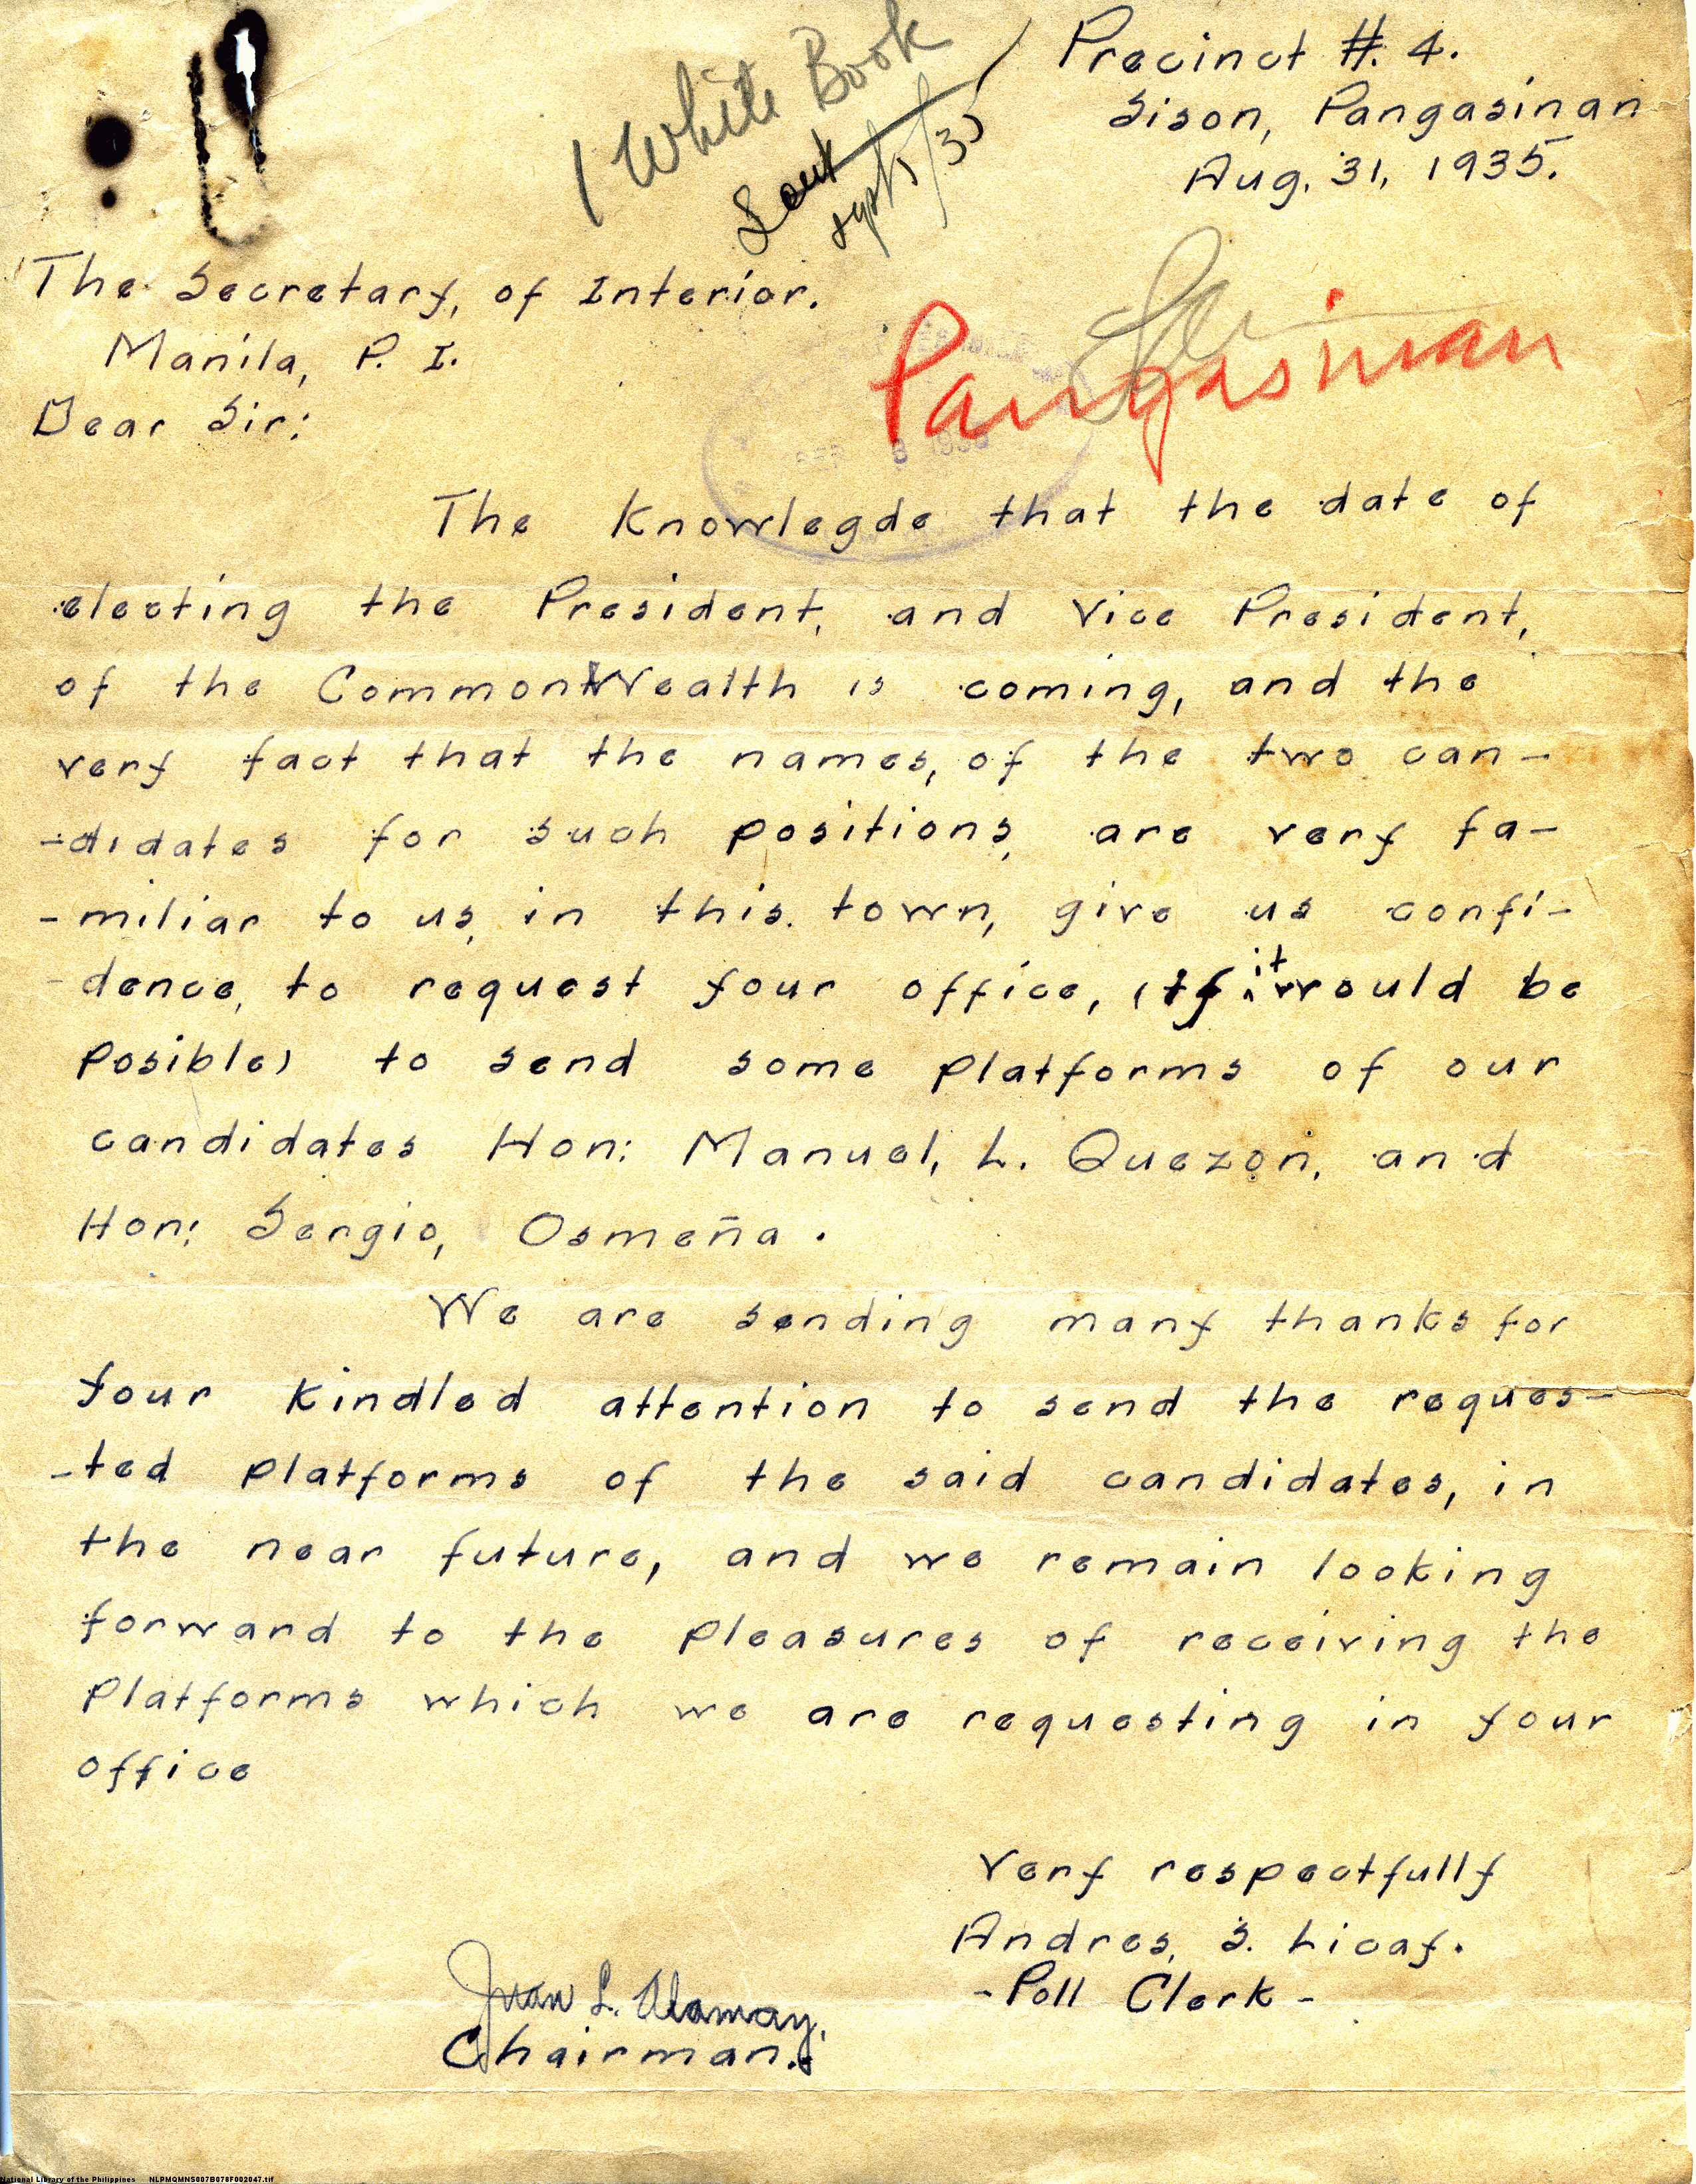 1 White Book
Sent
Sept 5/35
Precinct #. 4.
Sison, Pangasinan
Aug. 31, 1935.
The Secretary, of Interior.
Manila, P. I.
Dear Sir:
Pangasinan
The Knowlegde that the date of
electing the President, and Vice President,
of the CommonWealth is coming, and the
very fact that the names, of the two can-
-didates for such positions, are very fa-
-miliar to us, in this town, give us confi-
-dence, to request your office, (if it would be
posible) to send some platforms of our
candidates Hon: Manuel, L. Quezon, and
Hon: Sergio, Osmeña.
We are sending many thanks for
your kindled attention to send the reques-
-ted platforms of the said candidates, in
the near future, and we remain looking
forward to the pleasures of receiving the
platforms which we are requesting in your
office
Very respectfully
Andres, S. Licay.
-Poll Clerk-
Juan L. Alamay,
Chairman.
National Library of the Philippines NLPMQMNS007B078F002047.tif